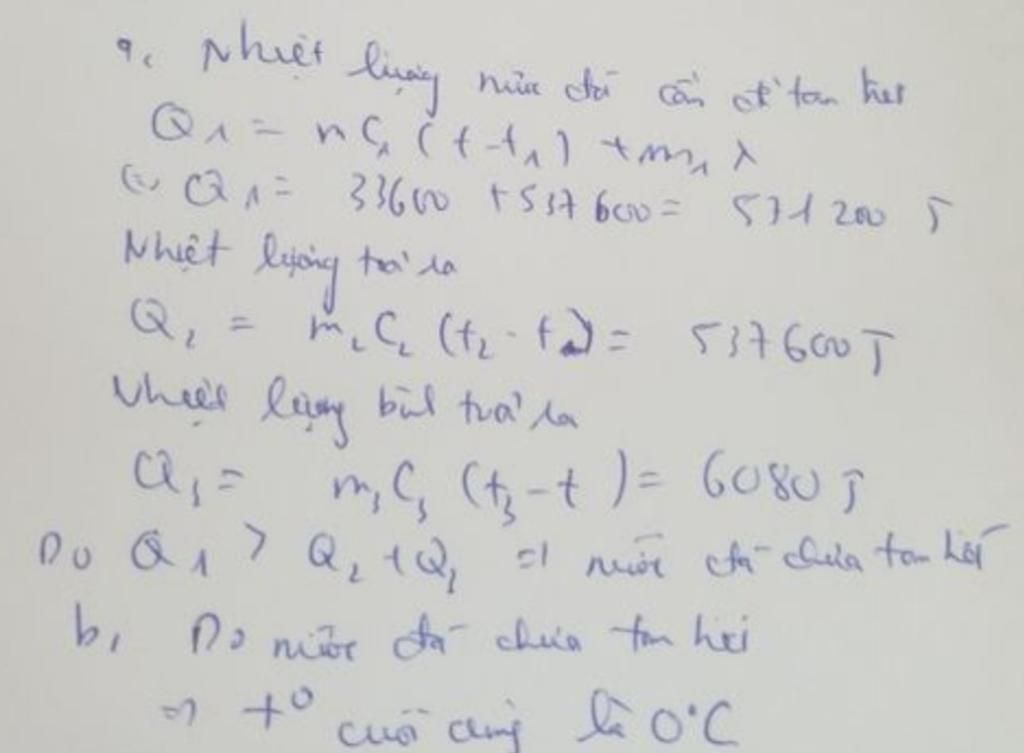 a, Nhiệt lượng nước đá cần để tan hết
Q₁ = m C₁ (t - t₁) + m₁ λ
Q₁ = 33600 + 537600 = 571200 J
Nhiệt lượng toả ra
Q₂ = m₂ C₂ (t₂ - t) = 537600 J
Nhiệt lượng bình toả ra
Q₃ = m₃ C₃ (t₃ - t) = 6080 J
Do Q₁ > Q₂ + Q₃ => nước đá chưa tan hết
b, Do nước đá chưa tan hết
=> t⁰ cuối cùng là 0°C